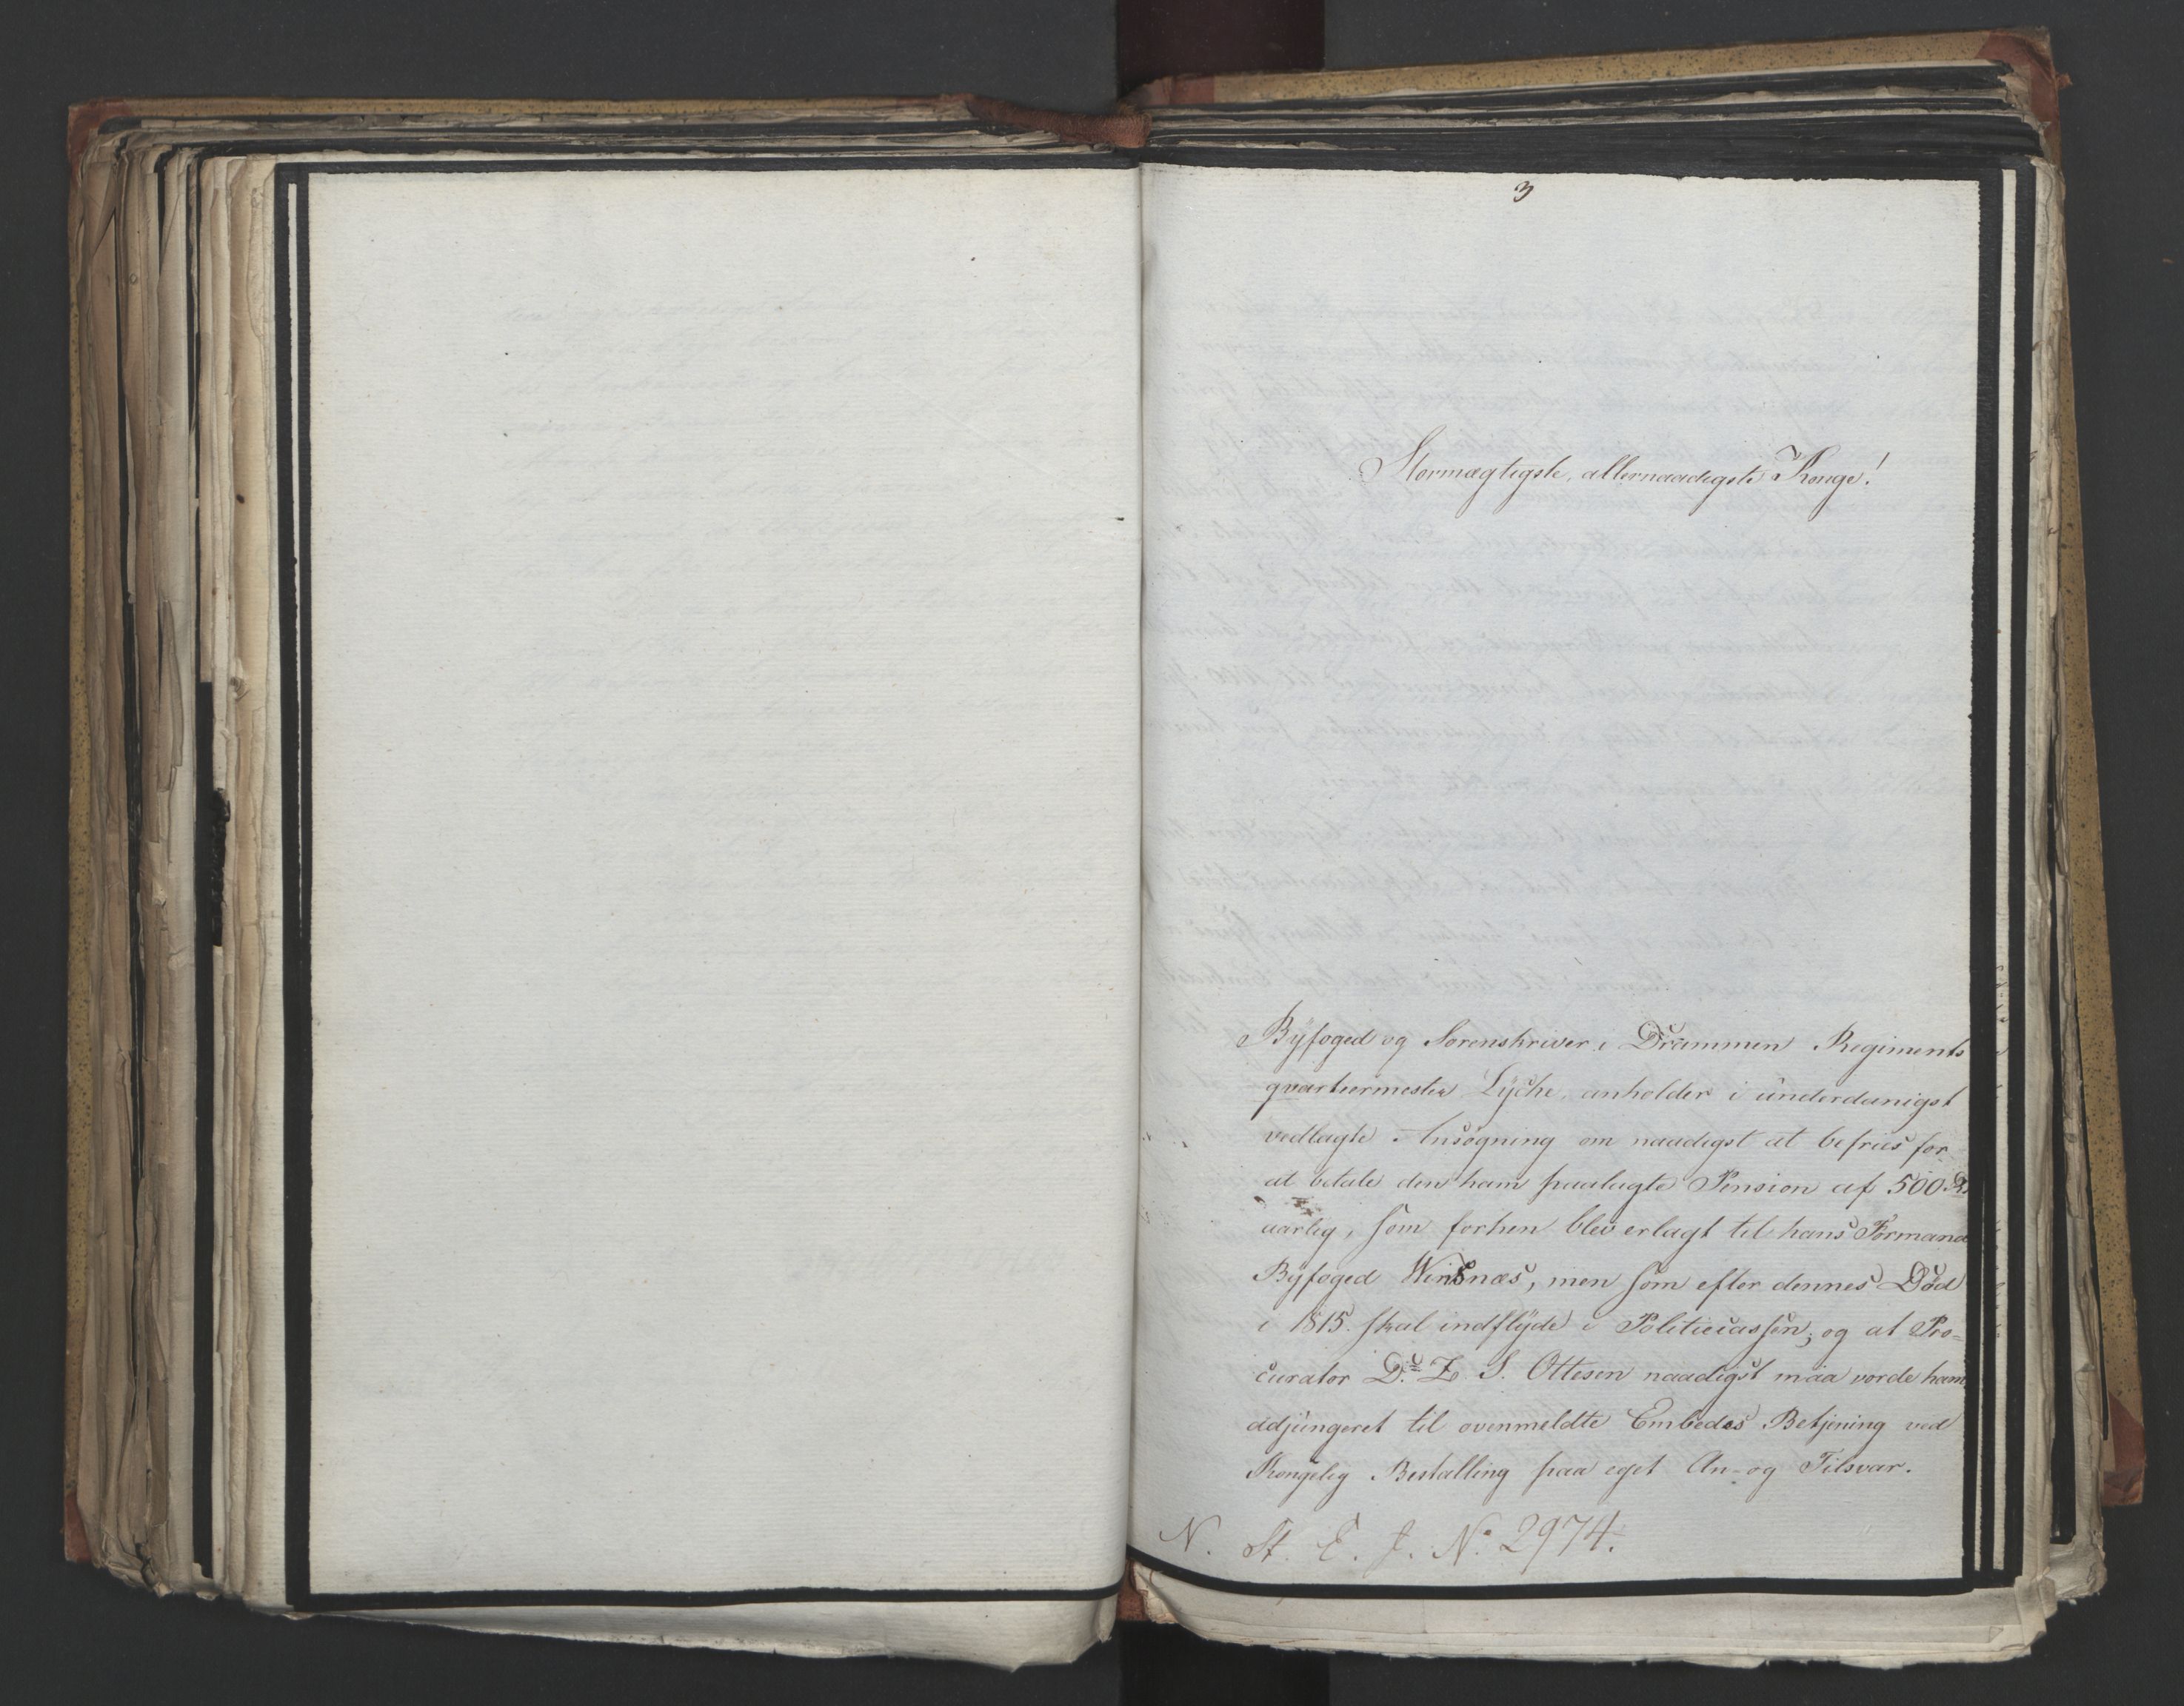 3
Stormægtigste, allernaadigste Konge!
Byfoged og Sorenskriver i Drammen Regiments
qvarteermester Lyche, anholder i underdanigst
vedlagte Ansøgning om naadigst at befries for
at betale den ham paalagte Pension af 500 Rd
aarlig, som forhen blev erlagt til hans Formand
Byfoged Winsnæs, men som efter dennes Død
i 1815. skal indflyde i Politiecassen; og at Pro=
curator Dr. Z. S. Ottesen naadigst maa vorde ham
adjungeret til ovenmeldte Embedes Betjening ved
Kongelig Bestalling paa eget An- og Tilsvar.
N. St. E. J. No 2974.